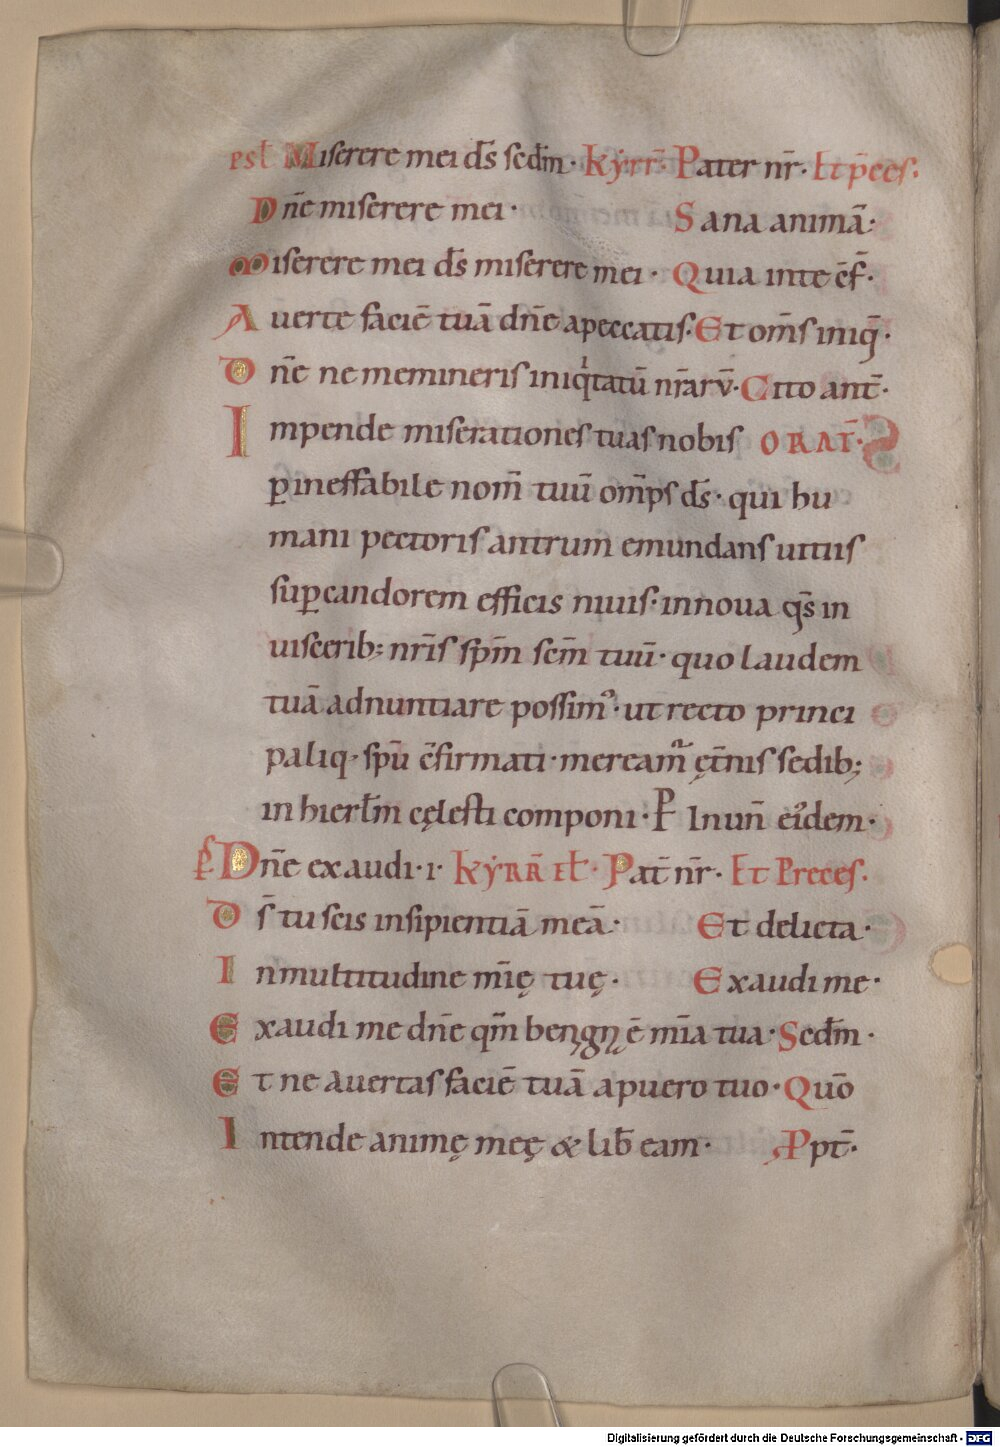 psł Miserere mei ds̄ scd̄m · Kẏrr̄ · Pater nr̄ · Et p̄ces ·
Dn̄e miserere mei · Sana animā ·
Miserere mei ds̄ miserere mei · Quia inte c̄f̄ ·
Auerte faciē tuā dn̄e apeccatis · Et om̄s iniq̄ ·
Dn̄e ne memineris iniqͥtatū nr̄arū · Cito ant̄ ·
Impende miserationes tuas nobis ORAT̄ · S
ꝑ ineffabile nom̄ tuū om̄ps ds̄ · qui hu
mani pectoris antrum emundans uitiis
suꝑ candorem efficis niuis · innoua qs̄ in
uiscerib; nr̄is sp̄m sc̄m tuū · quo laudem
tuā adnuntiare possim᾿ · ut recto princi
paliq · sp̄u c̄firmati · meream̄ ęt̄nis sedib;
in hierłm cęlesti componi · P̱ Inun̄ eͥdem ·
Ps̄ Dn̄e exaudi · i · Kẏrr̄ eł · Pat̄ nr̄ · Et Preces ·
Ds̄ tu scis insipientiā meā · Et delicta ·
Inmultitudine m̄ię tuę · Exaudi me ·
Exaudi me dn̄e qm̄ benigna ē m̄ia tua · Scd̄m ·
Et ne auertas faciē tuā apuero tuo · Quō
Intende animę meę & lib̄ eam · Ppt̄ ·
Digitalisierung gefördert durch die Deutsche Forschungsgemeinschaft - DFG